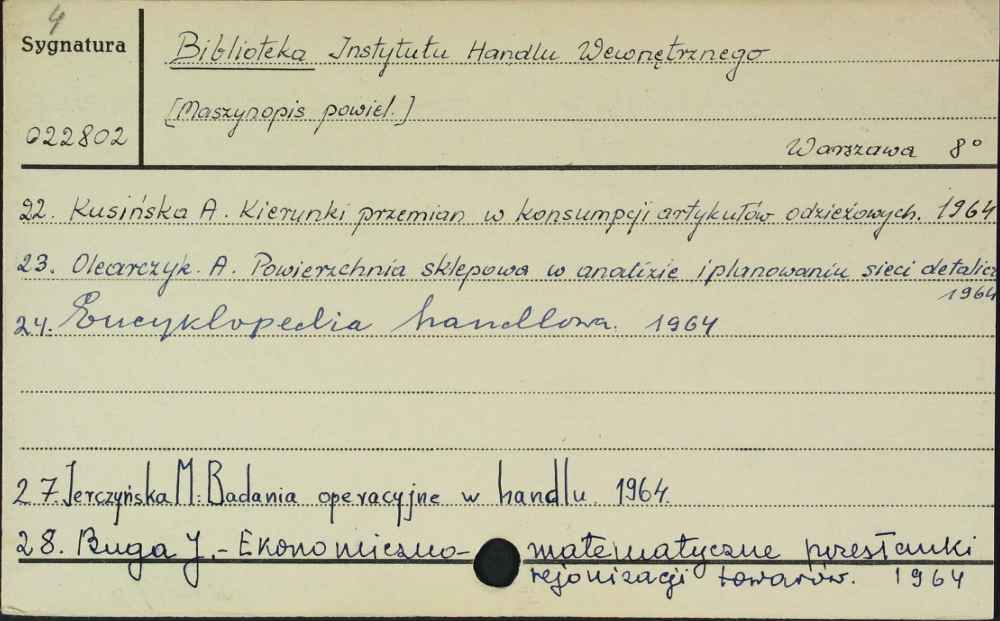 4
Sygnatura
Biblioteka Instytutu Handlu Wewnętrznego
[Maszynopis powiel.]
022802
Warszawa 8°
22. Kusińska A. Kierunki przemian w konsumpcji artykułów odzieżowych. 1964
23. Olearczyk. A. Powierzchnia sklepowa w analizie i planowaniu sieci detalicz
1964
24. Encyklopedia handlowa. 1964
27. Jerczyńska M: Badania operacyjne w handlu. 1964.
28. Buga J. - Ekonomiczno- matematyczne przesłanki
rejonizacji towarów. 1964